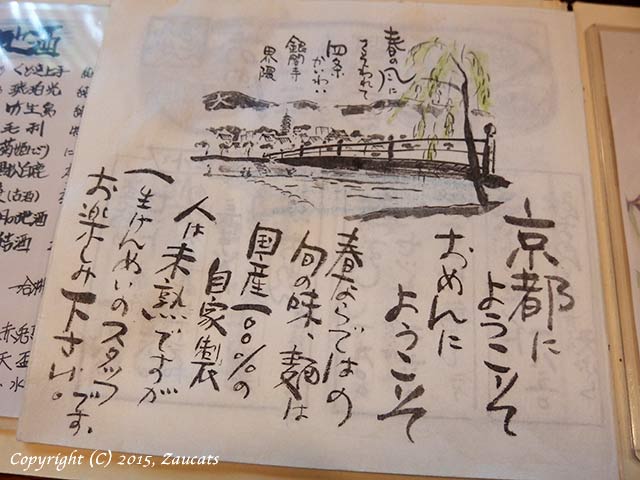 春の風に
さそわれて
四条
かいわい
銀閣寺
界隈
大
京都に
ようこそ
おめんに
ようこそ
春ならではの
旬の味、麺は
国産一〇〇％の
自家製
人は未熟ですが
一生けんめいのスタッフです。
お楽しみ下さい。
地酒
琥珀光
竹生島
毛利
(古酒)
地酒
水
Copyright (C) 2015, Zaucats